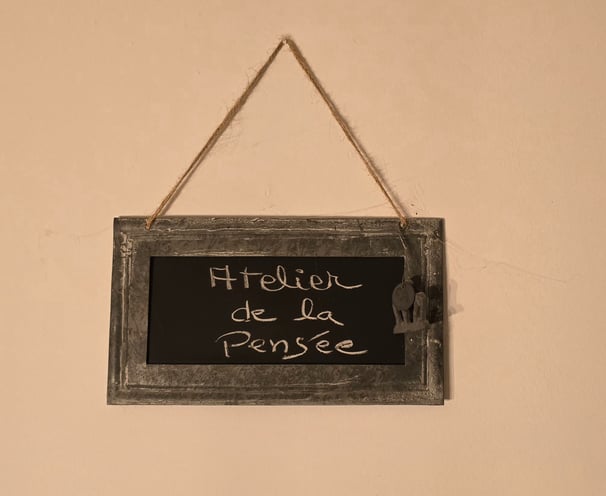 Atelier
de la
Pensée